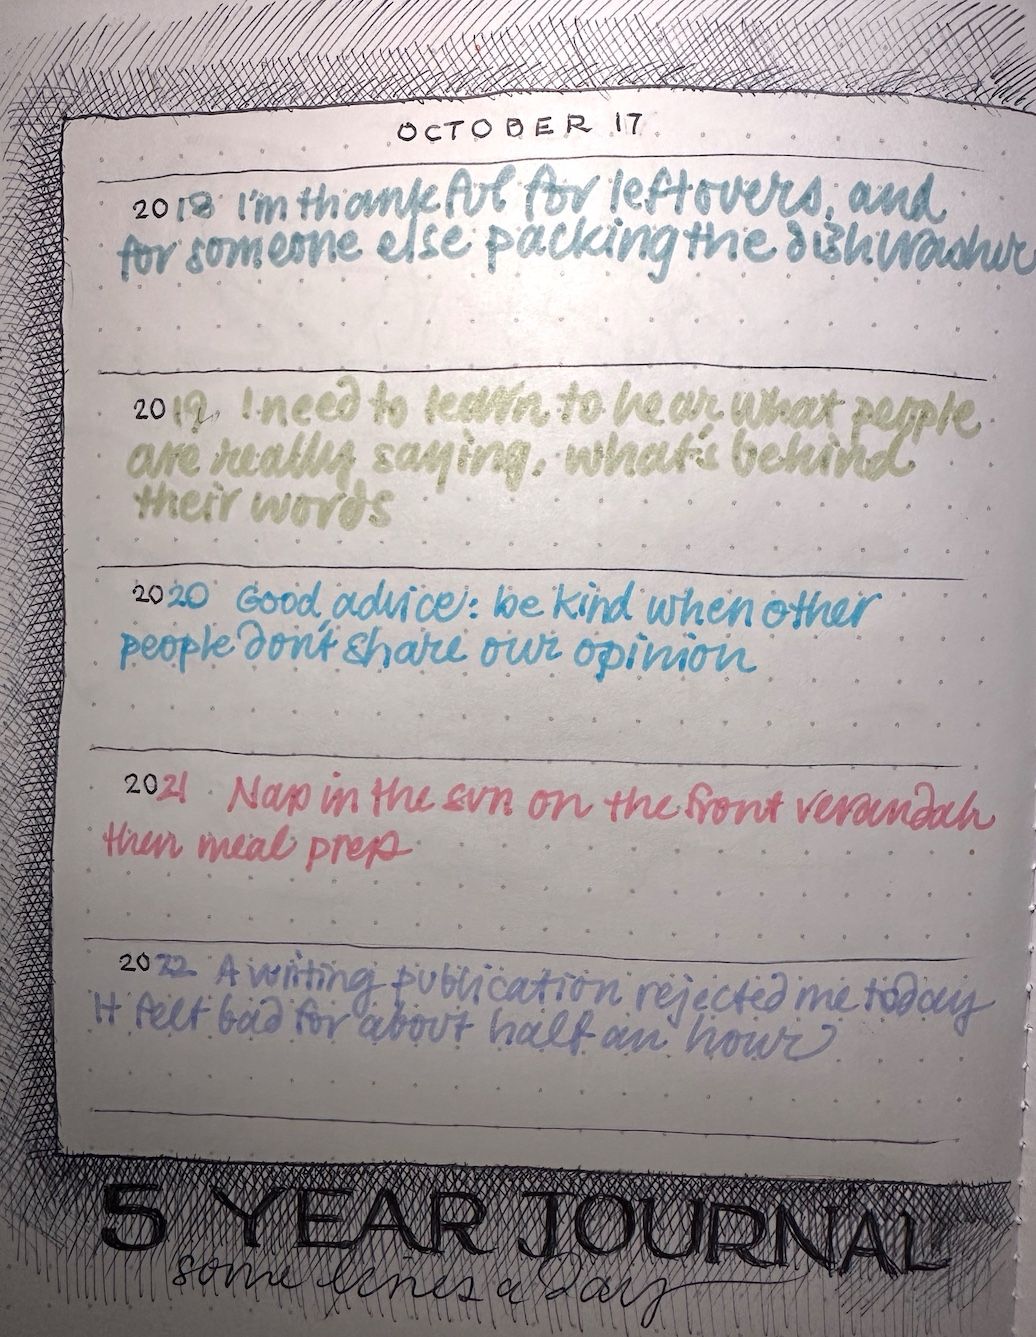 OCTOBER 17
2018 I'm thankful for leftovers, and
for someone else packing the dishwasher
2019 I need to learn to hear what people
are really saying, what's behind
their words
2020 Good advice: be kind when other
people don't share our opinion
2021 Nap in the sun on the front verandah
then meal prep
2022 A writing publication rejected me today
It felt bad for about half an hour
5 YEAR JOURNAL
some lines a day